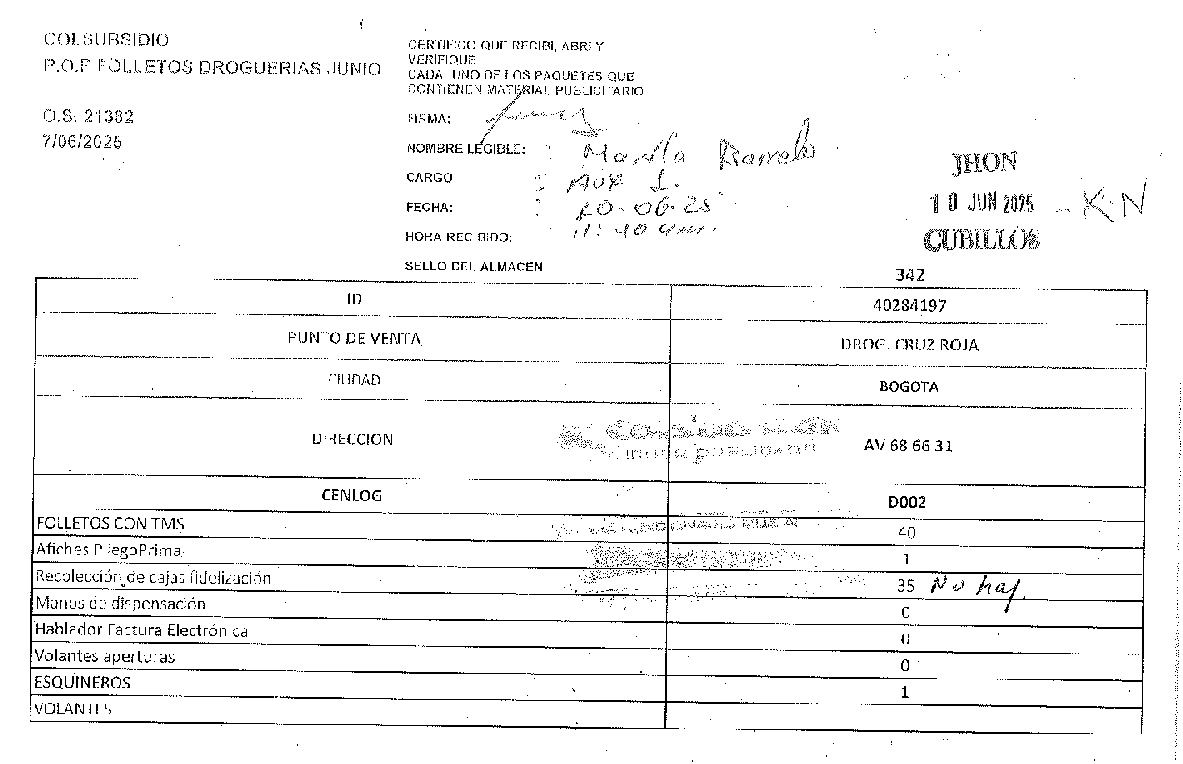 COLSUBSIDIO
P.O.P FOLLETOS DROGUERIAS JUNIO
O.S. 21382
7/06/2025
CERTIFICO QUE RECIBI, ABRI Y
VERIFIQUE
CADA UNO DE LOS PAQUETES QUE
CONTIENEN MATERIAL PUBLICITARIO
FIRMA:
NOMBRE LEGIBLE:
CARGO : Aux 1.
FECHA: : 10-06-25
HORA RECIBIDO: : 11:40 am.
SELLO DEL ALMACEN
JHON
10 JUN 2025 - K-N
CUBILLOS
342
ID 40284197
PUNTO DE VENTA DROG. CRUZ ROJA
CIUDAD BOGOTA
DIRECCION AV 68 66 31
CENLOG D002
FOLLETOS CON TMS 40
Afiches PliegoPrima 1
Recolección de cajas fidelización 35 No hay.
Manus de dispensación 0
Hablador Factura Electrónica 0
Volantes aperturas 0
ESQUINEROS 1
VOLANTES